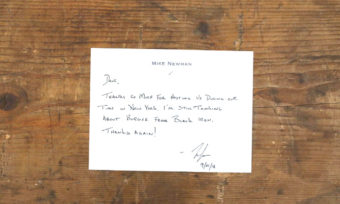 MIKE NEWMAN
DAVE,
THANKS SO MUCH FOR HAVING US DURING OUR
TIME IN NEW YORK. I'M STILL THINKING
ABOUT BURGER FROM BLACK IRON.
THANKS AGAIN!